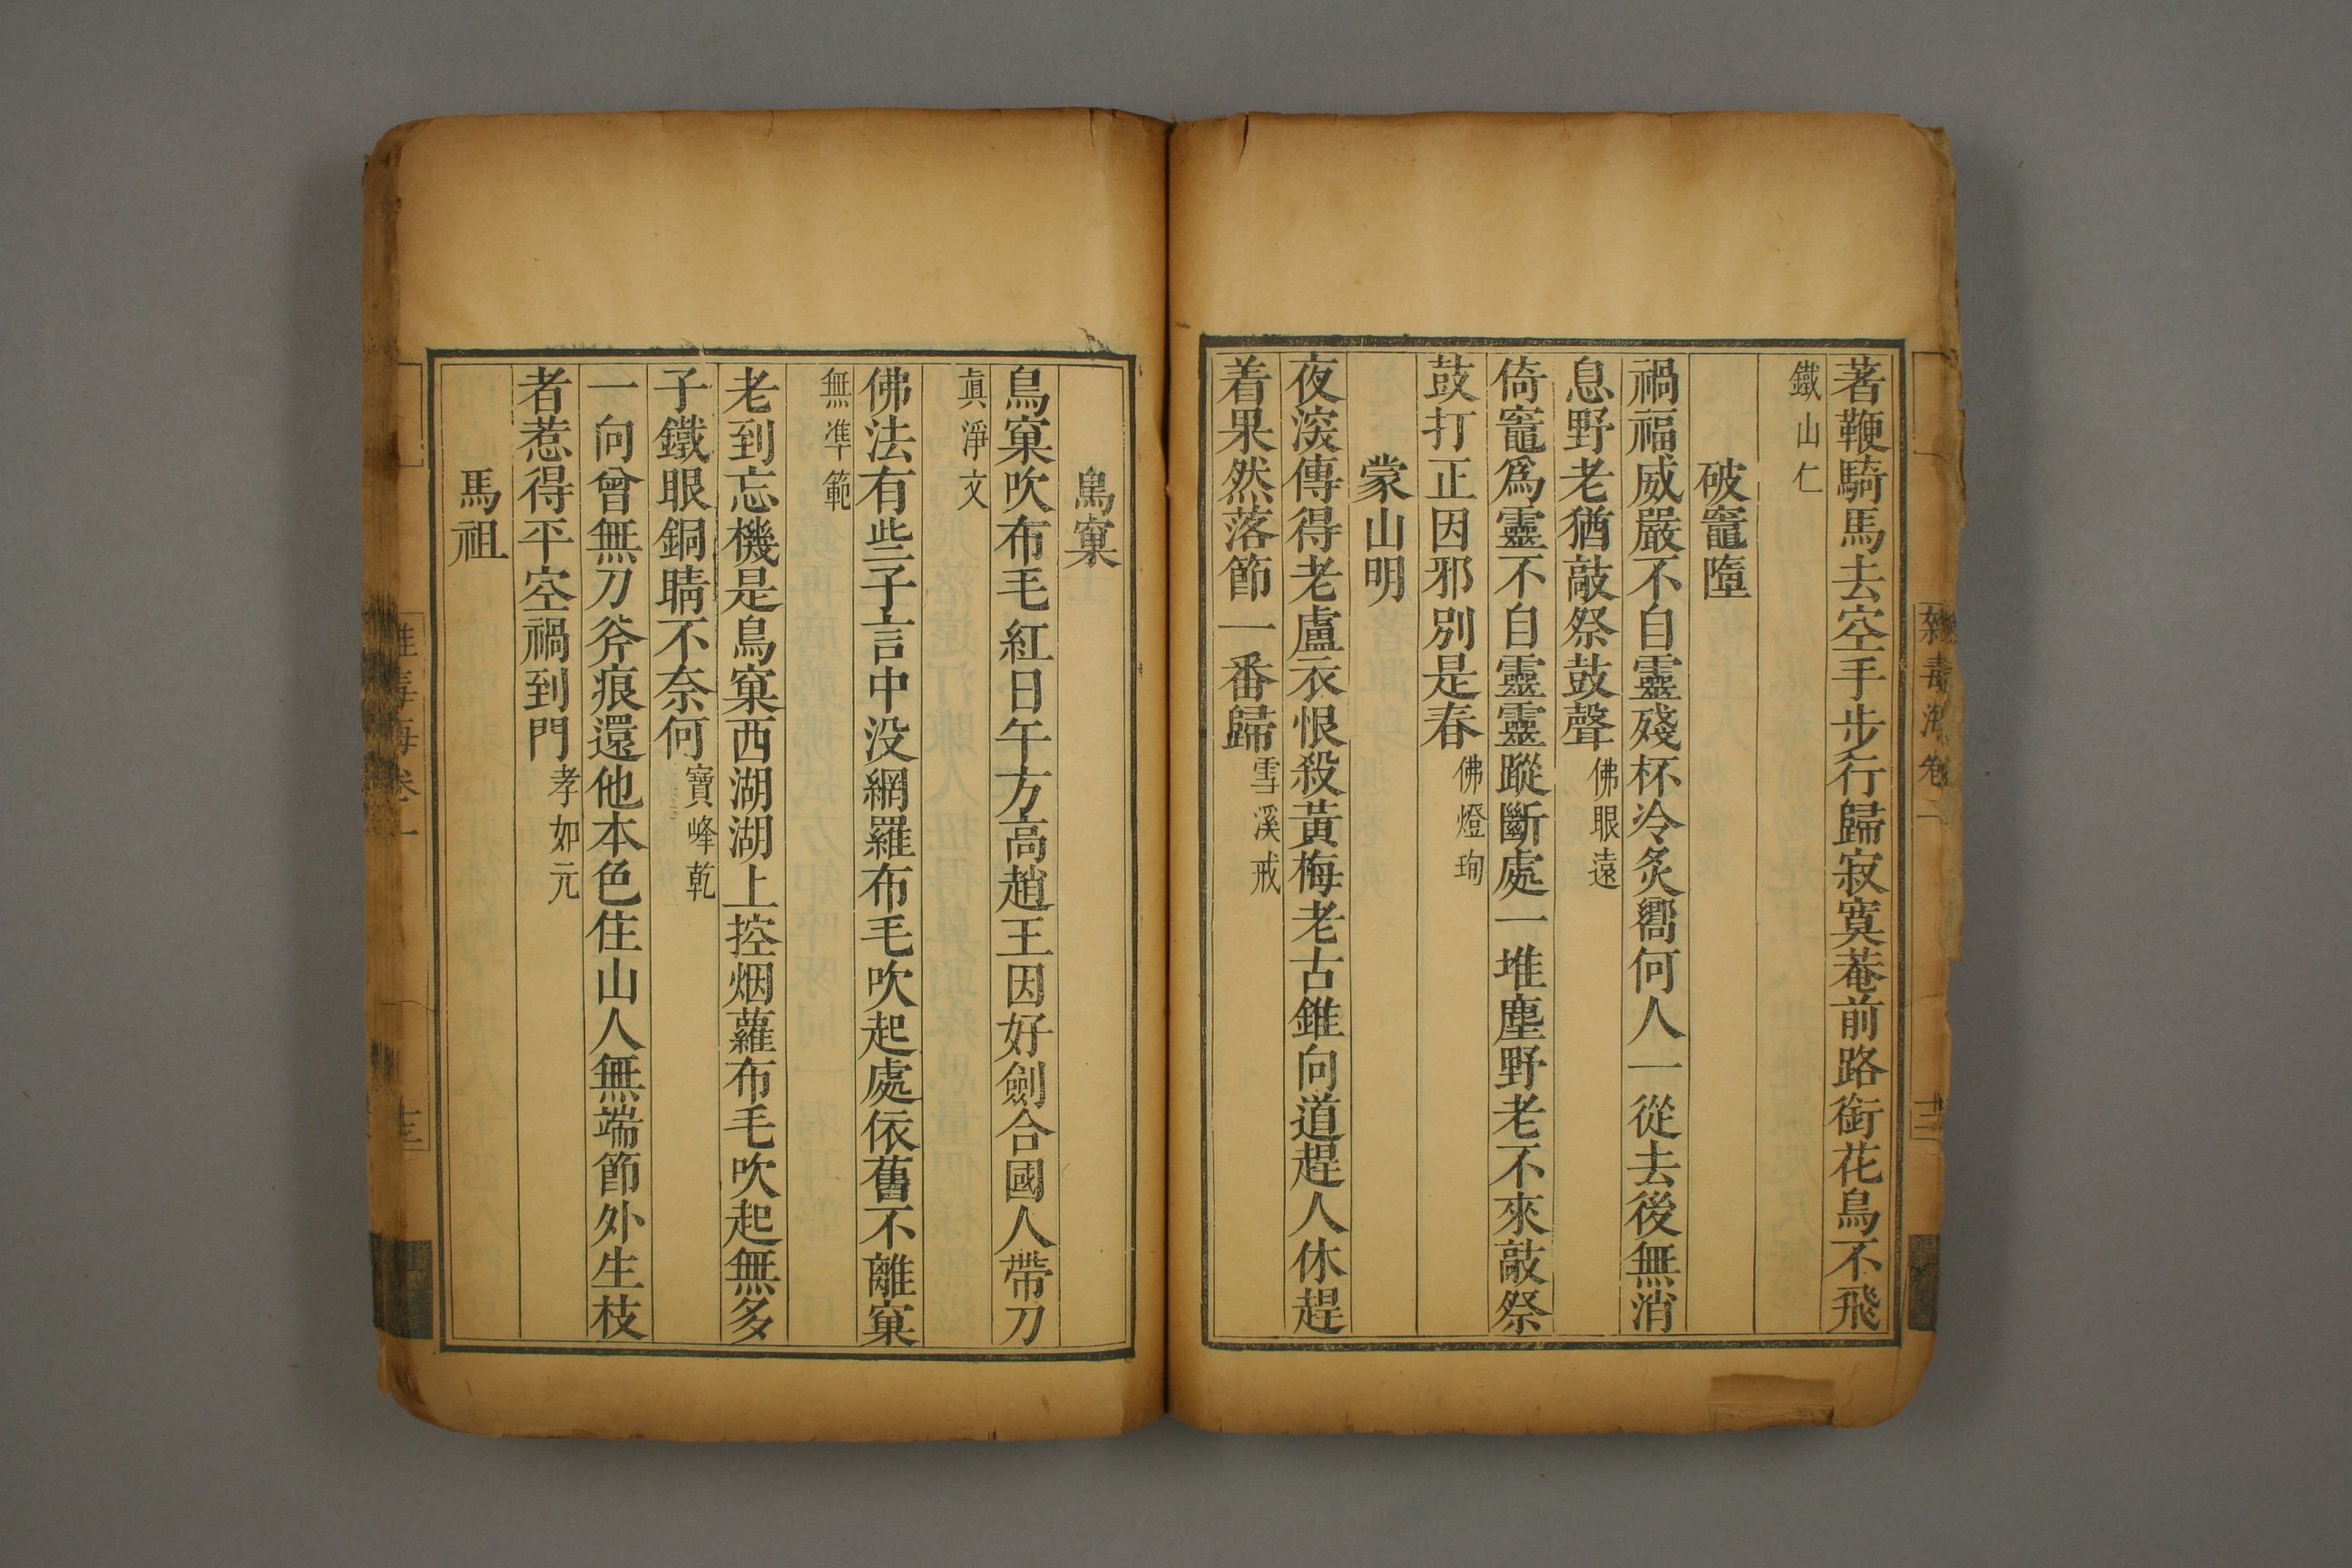 著鞭騎馬去空手步行歸寂寞菴前路銜花鳥不飛
鐵山仁
破竈墮
禍福威嚴不自靈殘杯冷炙嚮何人一從去後無消
息野老猶敲祭鼓聲 佛眼遠
倚竈爲靈不自靈靈蹤斷處一堆塵野老不來敲祭
鼓打正因邪別是春 佛燈珣
蒙山明
夜深傳得老盧衣恨殺黃梅老古錐向道趕人休趕
着果然落節一番歸 雪溪戒
鳥窠
鳥窠吹布毛紅日午方高趙王因好劍合國人帶刀
眞淨文
佛法有些子言中没網羅布毛吹起處依舊不離窠
無準範
老到忘機是鳥窠西湖湖上控烟蘿布毛吹起無多
子鐵眼銅睛不奈何 寶峰乾
一向曾無刀斧痕還他本色住山人無端節外生枝
者惹得平空禍到門 孝如元
馬祖
雜毒海卷二